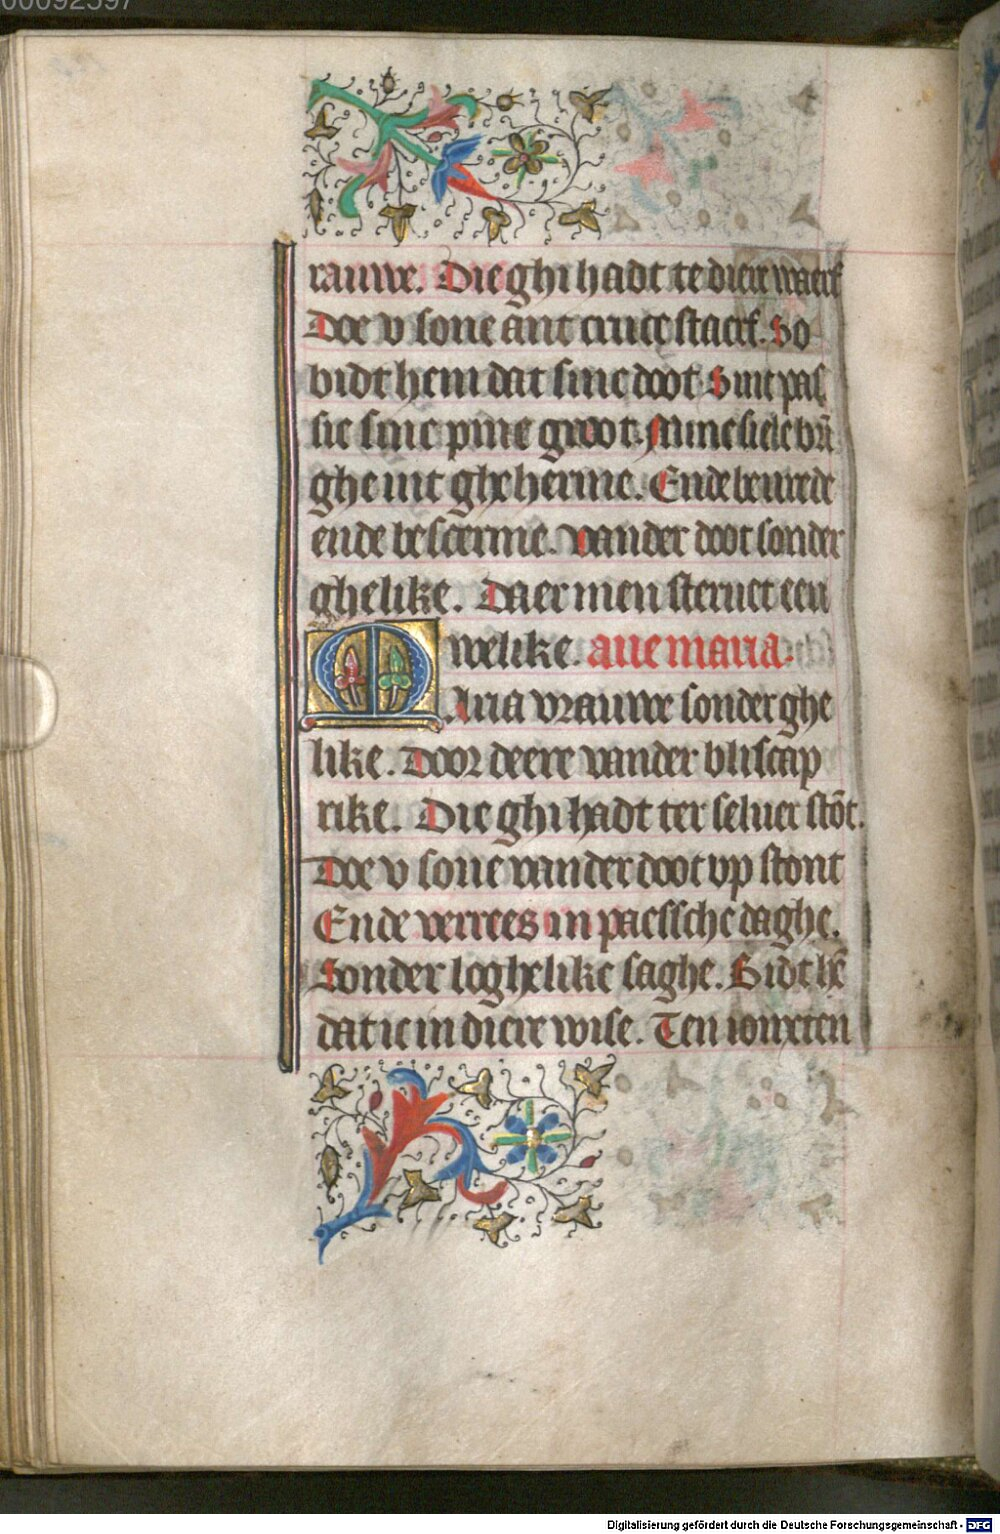 00092597
rauwe. Die ghi hadt te diere waerf
Doe v sone ant cruce staerf. So
bidt hem dat sine doot. Sine pas
sie sine pine groot. Mine siele brī
ghe uut gheherme. Ende bewrede
ende bescerme. vander doot sonder
ghelike. Daer men steruet een
welike. aue maria.
Maria vrauwe sonder ghe
like. Door deere vander bliscap
rike. Die ghi hadt ter seluer stōt.
Doe v sone vander doot vp stont
Ende verrees in paessche daghe.
Sonder loghelike saghe. Bidt hē
dat ic in diere wise. Ten ioncxten
Digitalisierung gefördert durch die Deutsche Forschungsgemeinschaft - DFG